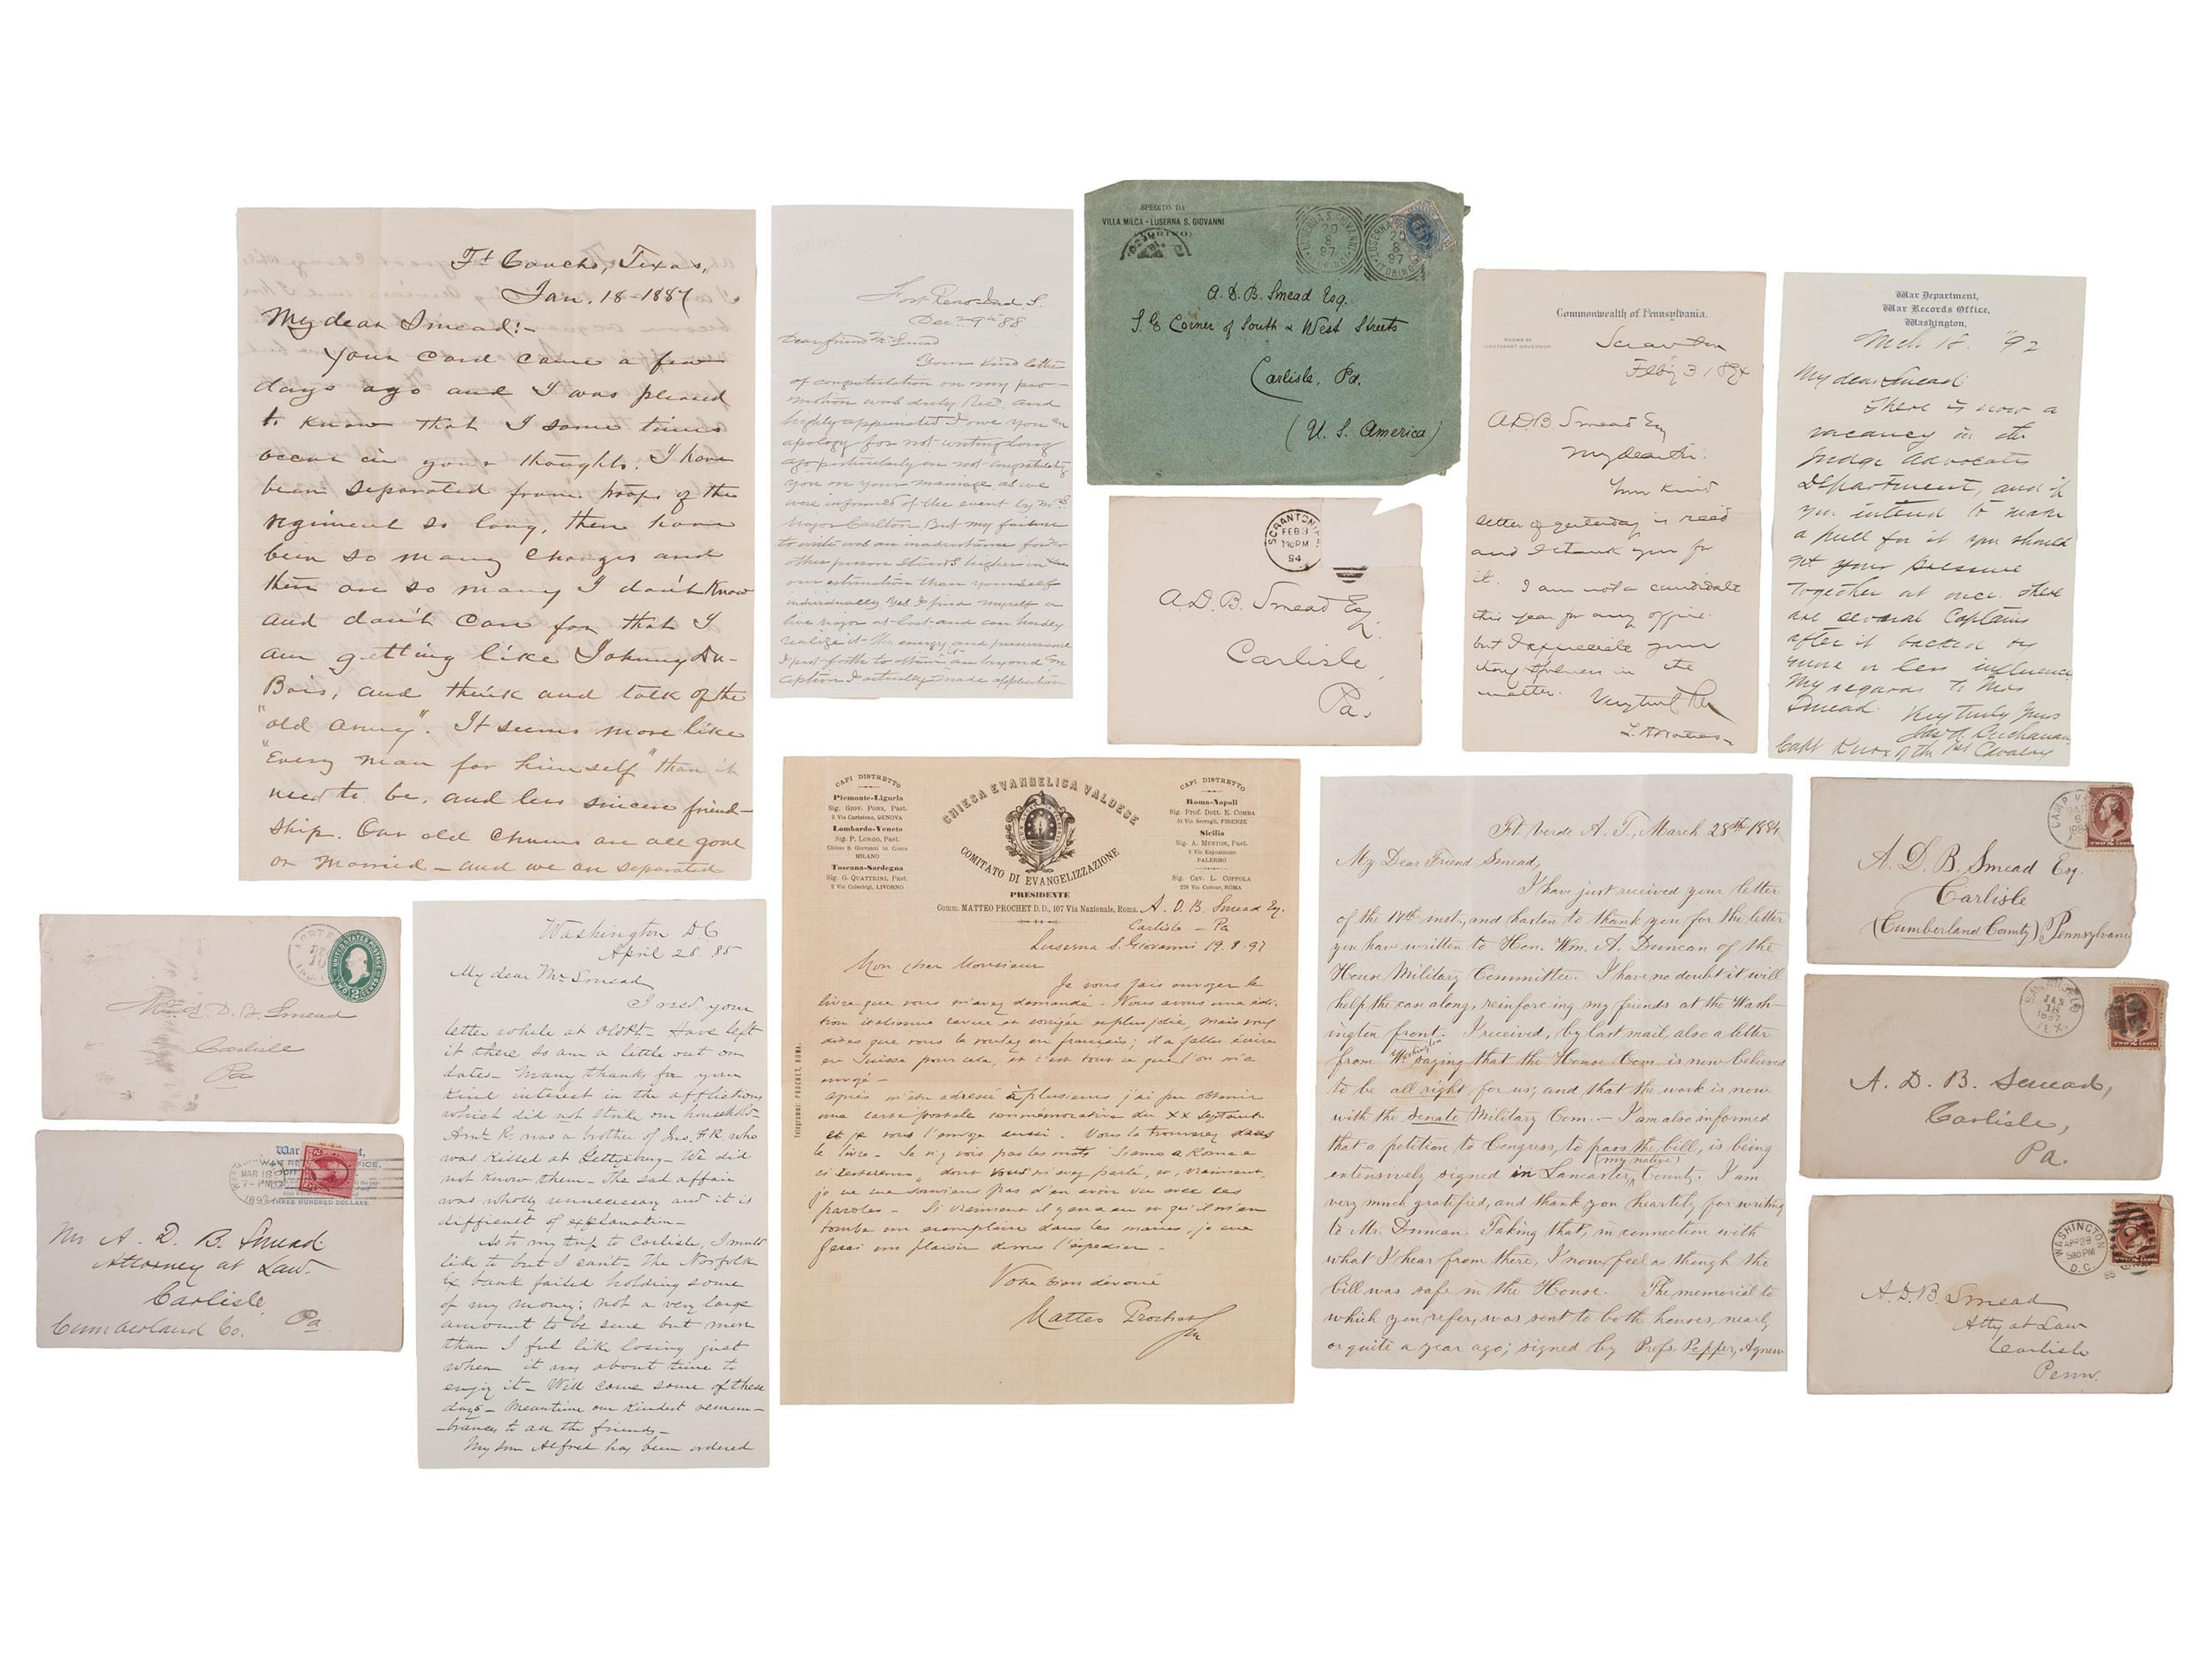 Ft Concho, Texas,
Jan. 18-1887.
My dear Smead:-
Your card came a few
days ago and I was pleased
to know that I some times
occur in your thoughts. I have
been separated from troops of the
regiment so long, there have
been so many changes and
there are so many I don't know
and don't care for that I
am getting like Johnny Du-
Bois, and think and talk of the
"old army". It seems more like
"Every man for himself" than it
used to be, and less sincere friend-
ship. Our old chums are all gone
or married - and we are separated
Fort Reno Ind. T.
Dec. 9th 88
Dear friend Mr Smead
Your kind letter
of congratulation on my pro-
motion was duly Rec. and
highly appreciated I owe you an
apology for not writing long
ago particularly in not congratulating
you on your marriage as we
were informed of the event by Mrs
Major Carlton. But my failure
to write was an inadvertance for no
other person stands higher in
our estimation than yourself
individually Yes I find myself a
live major at last and can hardly
realize it the energy and perseverance
I put forth to
I actually made application
SPEDITO DA
VILLA MILCA - LUSERNA S. GIOVANNI
(TORINO)
LUSERNA S. GIOVANNI
20
8
97
(TORINO)
LUSERNA S. GIOVANNI
20
8
97
(TORINO)
A. D. B. Smead Esq.
S. E. Corner of South & West Streets
Carlisle, Pa.
(U. S. America)
SCRANTON
FEB 3
1 30 PM
94
A.D. B. Smead Esq
Carlisle
Pa.
Commonwealth of Pennsylvania.
ROOMS OF
LIEUTENANT GOVERNOR
Scranton
Feb'y 3 1894
ADB Smead Esq
My dear Sir.
Your kind
letter of yesterday is recd
and I thank you for
it. I am not a candidate
this year for any office
but I appreciate your
thoughtfulness in the
matter. Very truly
War Department,
War Records Office,
Washington,
Mch 18 "92
My dear Smead
There is now a
vacancy in the
Judge Advocates
Department, and if
you intend to make
a pull for it you should
get your pressure
together at once. There
are several Captains
after it backed by
more or less influence
My regards to Mrs
Smead. Very truly yours
Buchanan
Capt Knox of the 1st Cavalry
FORT
Mr A. D. B. Smead
Carlisle
Pa
UNITED STATES POSTAGE
TWO 2 CENTS
War
WAR RE OFFICE,
THREE HUNDRED DOLLARS.
MAR 18
7-PM
1892
Mr A. D. B. Smead
Attorney at Law
Carlisle
Cumberland Co. Pa
Washington DC
April 28. 85
My dear Mr Smead
I recd. your
letter while at Old Pt - Have left
it there so am a little out on
dates - Many thanks for your
kind interest in the affliction
which did not strike our household -
Amt. R. was a brother of Jno. F R who
was killed at Gettysburg - We did
not know them - The sad affair
was wholly unnecessary and it is
difficult of explanation -
As to my trip to Carlisle, I would
like to but I can't - The Norfolk
Ex bank failed holding some
of my money; not a very large
amount to be sure but more
than I feel like losing just
when it was about time to
enjoy it - Will come some of these
days - Meantime our kindest remem-
-brances to all the friends -
My son Alfred has been ordered
CHIESA EVANGELICA VALDESE
COMITATO DI EVANGELIZZAZIONE
CAPI DISTRETTO
Piemonte-Liguria
Sig. GIOV. PONS, Past.
2 Via Curtatone, GENOVA
Lombardo-Veneto
Sig. P. LONGO, Past.
Chiesa S. Giovanni in Conca
MILANO
Toscana-Sardegna
Sig. G. QUATTRINI, Past.
2 Via Calzabigi, LIVORNO
CAPI DISTRETTO
Roma-Napoli
Sig. Prof. Dott. E. COMBA
51 Via Serragli, FIRENZE
Sicilia
Sig. A. MUSTON, Past.
Via Esposizione
PALERMO
Sig. Cav. L. COPPOLA
276 Via Cavour, ROMA
PRESIDENTE
Comm. MATTEO PROCHET D.D., 107 Via Nazionale, Roma.
Telegrammi: PROCHET, ROMA.
A. D. B. Smead Esq.
Carlisle - Pa
Luserna S. Giovanni 19.8.97
Mon cher Monsieur
Je vous fais envoyer le
livre que vous m'avez demandé - Nous avons une édi-
tion italienne revue et corrigée et plus jolie, mais vous
dites que vous le voulez en français; il a fallu écrire
en Suisse pour cela, et c'est tout ce que l'on m'a
envoyé -
après m'être adressé à plusieurs j'ai pu obtenir
une carte postale commémorative du XX septembre
et je vous l'envoye aussi. Vous la trouverez dans
le livre - Je n'y vois pas les mots "Siamo a Roma e
ci resteremo" dont vous m'avez parlé, et, vraiment,
je ne me souviens pas d'en avoir vu avec ces
paroles - Si vraiment il y en a eu et qu'il m'en
tombe un exemplaire dans les mains, je me
ferai un plaisir de vous l'expédier -
Votre bien dévoué
Matteo Prochet
Ft. Verde A. T., March 28th 1884
My Dear Friend Smead,
I have just received your letter
of the 17th inst., and hasten to thank you for the letter
you have written to Hon. Wm. A. Duncan of the
House Military Committee. I have no doubt it will
help the case along, reinforcing my friends at the Wash-
ington front. I received, by last mail, also a letter
from Washington saying that the House Com. is now believed
to be all right for us; and that the work is now
with the Senate Military Com. - I am also informed
that a petition to Congress, to pass the bill, is being
extensively signed in Lancaster (my native) County. I am
very much gratified, and thank you heartily, for writing
to Mr. Duncan. Taking that, in connection with
what I hear from there, I now feel as though the
bill was safe in the House. The memorial to
which you refer, was sent to both houses, nearly
or quite a year ago; signed by Profs. Pepper, Agnew
CAMP V
A. D. B. Smead Esq.
Carlisle
(Cumberland County) Pennsylvania
SAN ANGELO
JAN
18
1887
TEX.
A. D. B. Smead,
Carlisle,
Pa.
WASHINGTON
APR 28
5 30 PM
D.C.
A. D. B. Smead
Atty at Law
Carlisle
Penn.